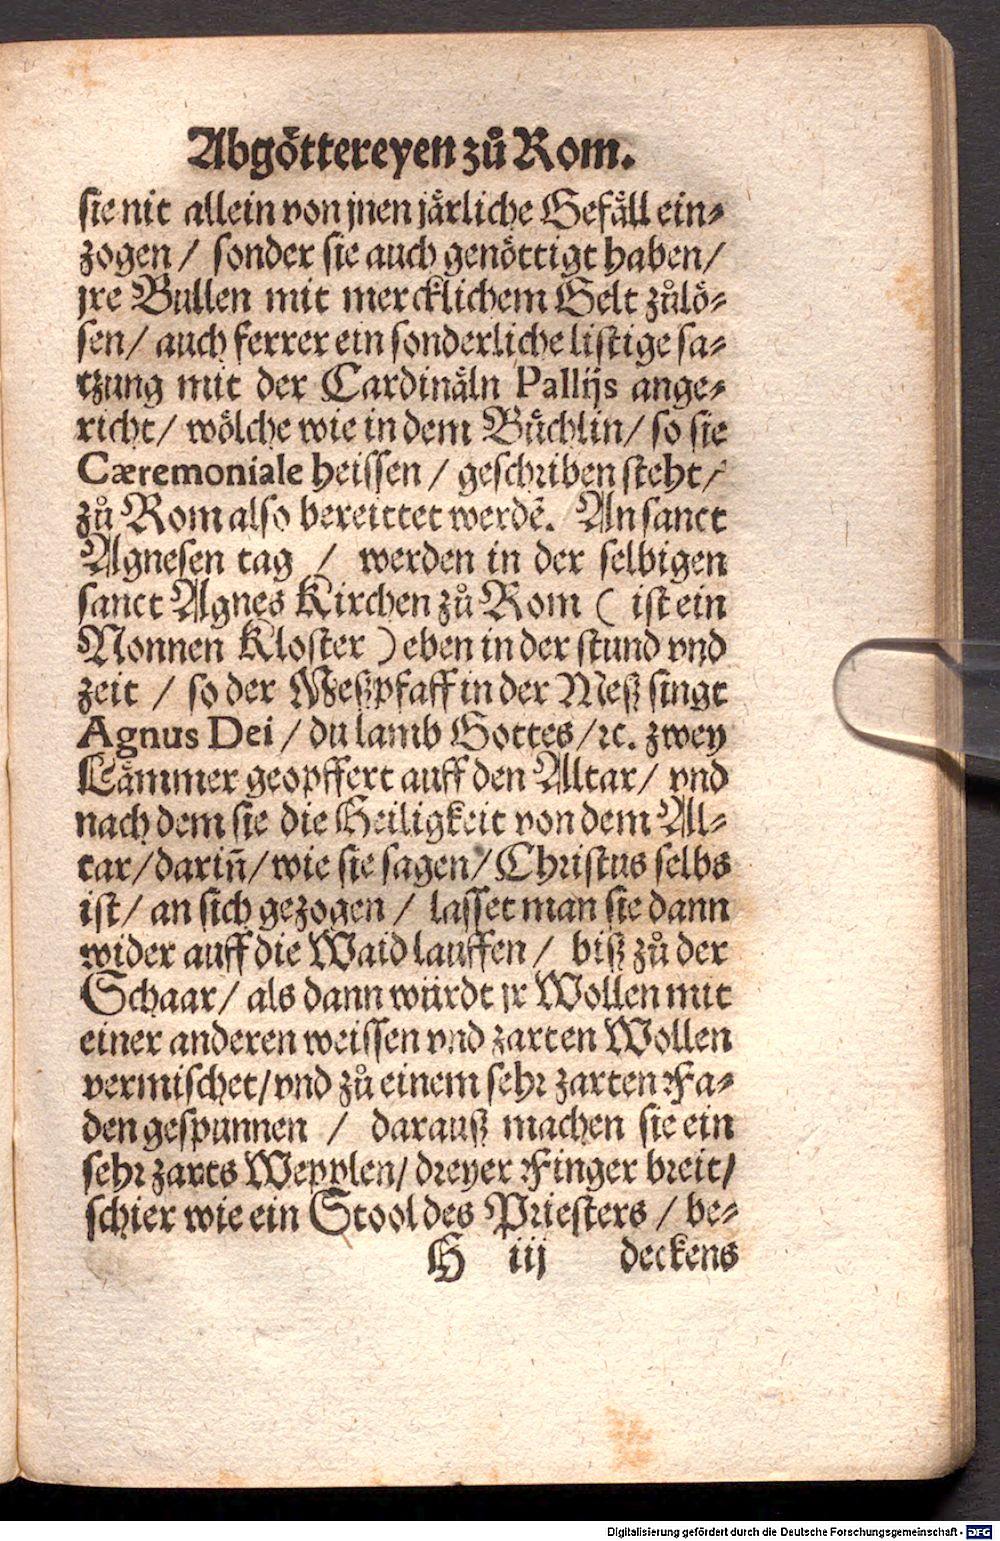 Abgoͤttereyen zuͦ Rom.
sie nit allein von jnen jaͤrliche Gefaͤll ein⸗
zogen / sonder sie auch genoͤttigt haben /
jre Bullen mit mercklichem Gelt zuͦloͤ⸗
sen / auch ferrer ein sonderliche listige sa⸗
tzung mit der Cardinaͤln Pallijs ange⸗
richt / woͤlche wie in dem Buͤchlin / so sie
Cæremoniale heissen / geschriben steht /
zuͦ Rom also bereittet werdē. An sanct
Agnesen tag / werden in der selbigen
sanct Agnes Kirchen zuͦ Rom ( ist ein
Nonnen Kloster ) eben in der stund vnd
zeit / so der Meßpfaff in der Meß singt
Agnus Dei / du lamb Gottes / ꝛc. zwey
Laͤmmer geopffert auff den Altar / vnd
nach dem sie die Heiligkeit von dem Al⸗
tar / darin̄ / wie sie sagen / Christus selbs
ist / an sich gezogen / lasset man sie dann
wider auff die Waid lauffen / biß zuͦ der
Schaar / als dann würdt jr Wollen mit
einer anderen weissen vnd zarten Wollen
vermischet / vnd zuͦ einem sehr zarten Fa⸗
den gespunnen / darauß machen sie ein
sehr zarts Wepplen / dreyer Finger breit /
schier wie ein Stool des Priesters / be⸗
H iij deckens
Digitalisierung gefördert durch die Deutsche Forschungsgemeinschaft - DFG